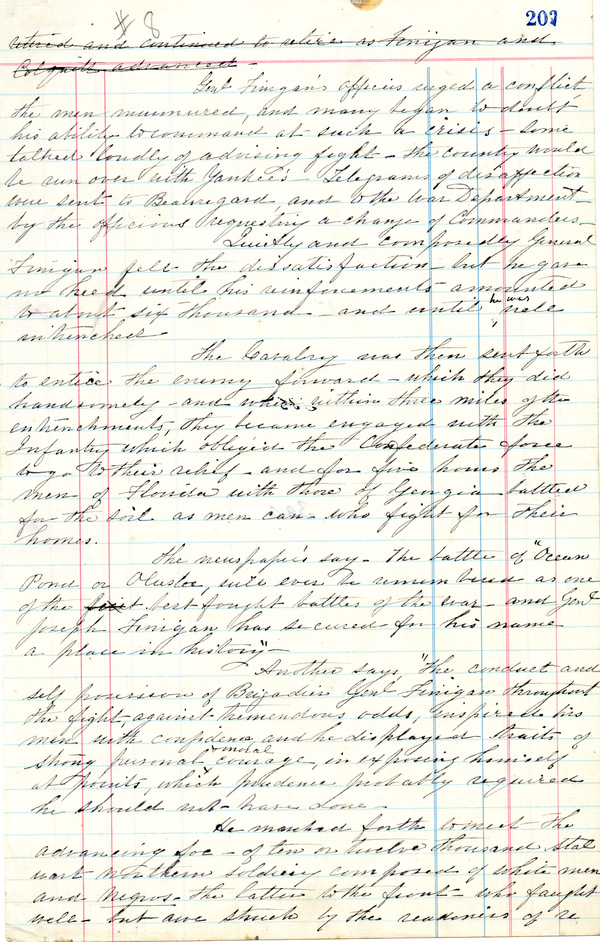 # 8
207
retired and continued to retire as Finigan and
Colquitt advanced -
Genl Finigan's officers urged a conflict
the men murmured, and many began to doubt
his ability to command at such a crisis - Some
talked loudly of advising fight - the country would
be run over with Yankee's - Telegrams of disaffection
were sent to Beauregard, and to the War Department -
by the officious requesting a change of Commanders -
Quietly and composedly General
Finigan felt the dissatisfaction - but he gave
no heed, until his reinforcements amounted
to about six thousand - and until he was well
entrenched
The Cavalry was then sent forth
to entice the enemy forward - which they did
handsomely - and when within three miles of the
entrenchments, they became engaged with the
Infantry which obliged the Confederate force
to go to their relief - and for five hours the
men of Florida with those of Georgia battled
for the soil as men can who fight for their
homes.
The newspaper's say - The battle of "Ocean
Pond or Olustee, will ever be remembered as one
of the best fought battles of the war - and Genl
Joseph Finigan has secured for his name
a place in history" -
Another says, "The conduct and
self possession of Brigadier Genl Finigan throughout
the fight, against tremendous odds, inspired his
men with confidence and he displayed traits of
strong personal & moral courage, in exposing himself
at points, which prudence probably required
he should not have done -
He marched forth to meet the
advancing foe - of ten or twelve thousand stal
wart northern soldiery composed of white men
and negros - the latter to the front - who fought
well - but awe struck by the readiness of re